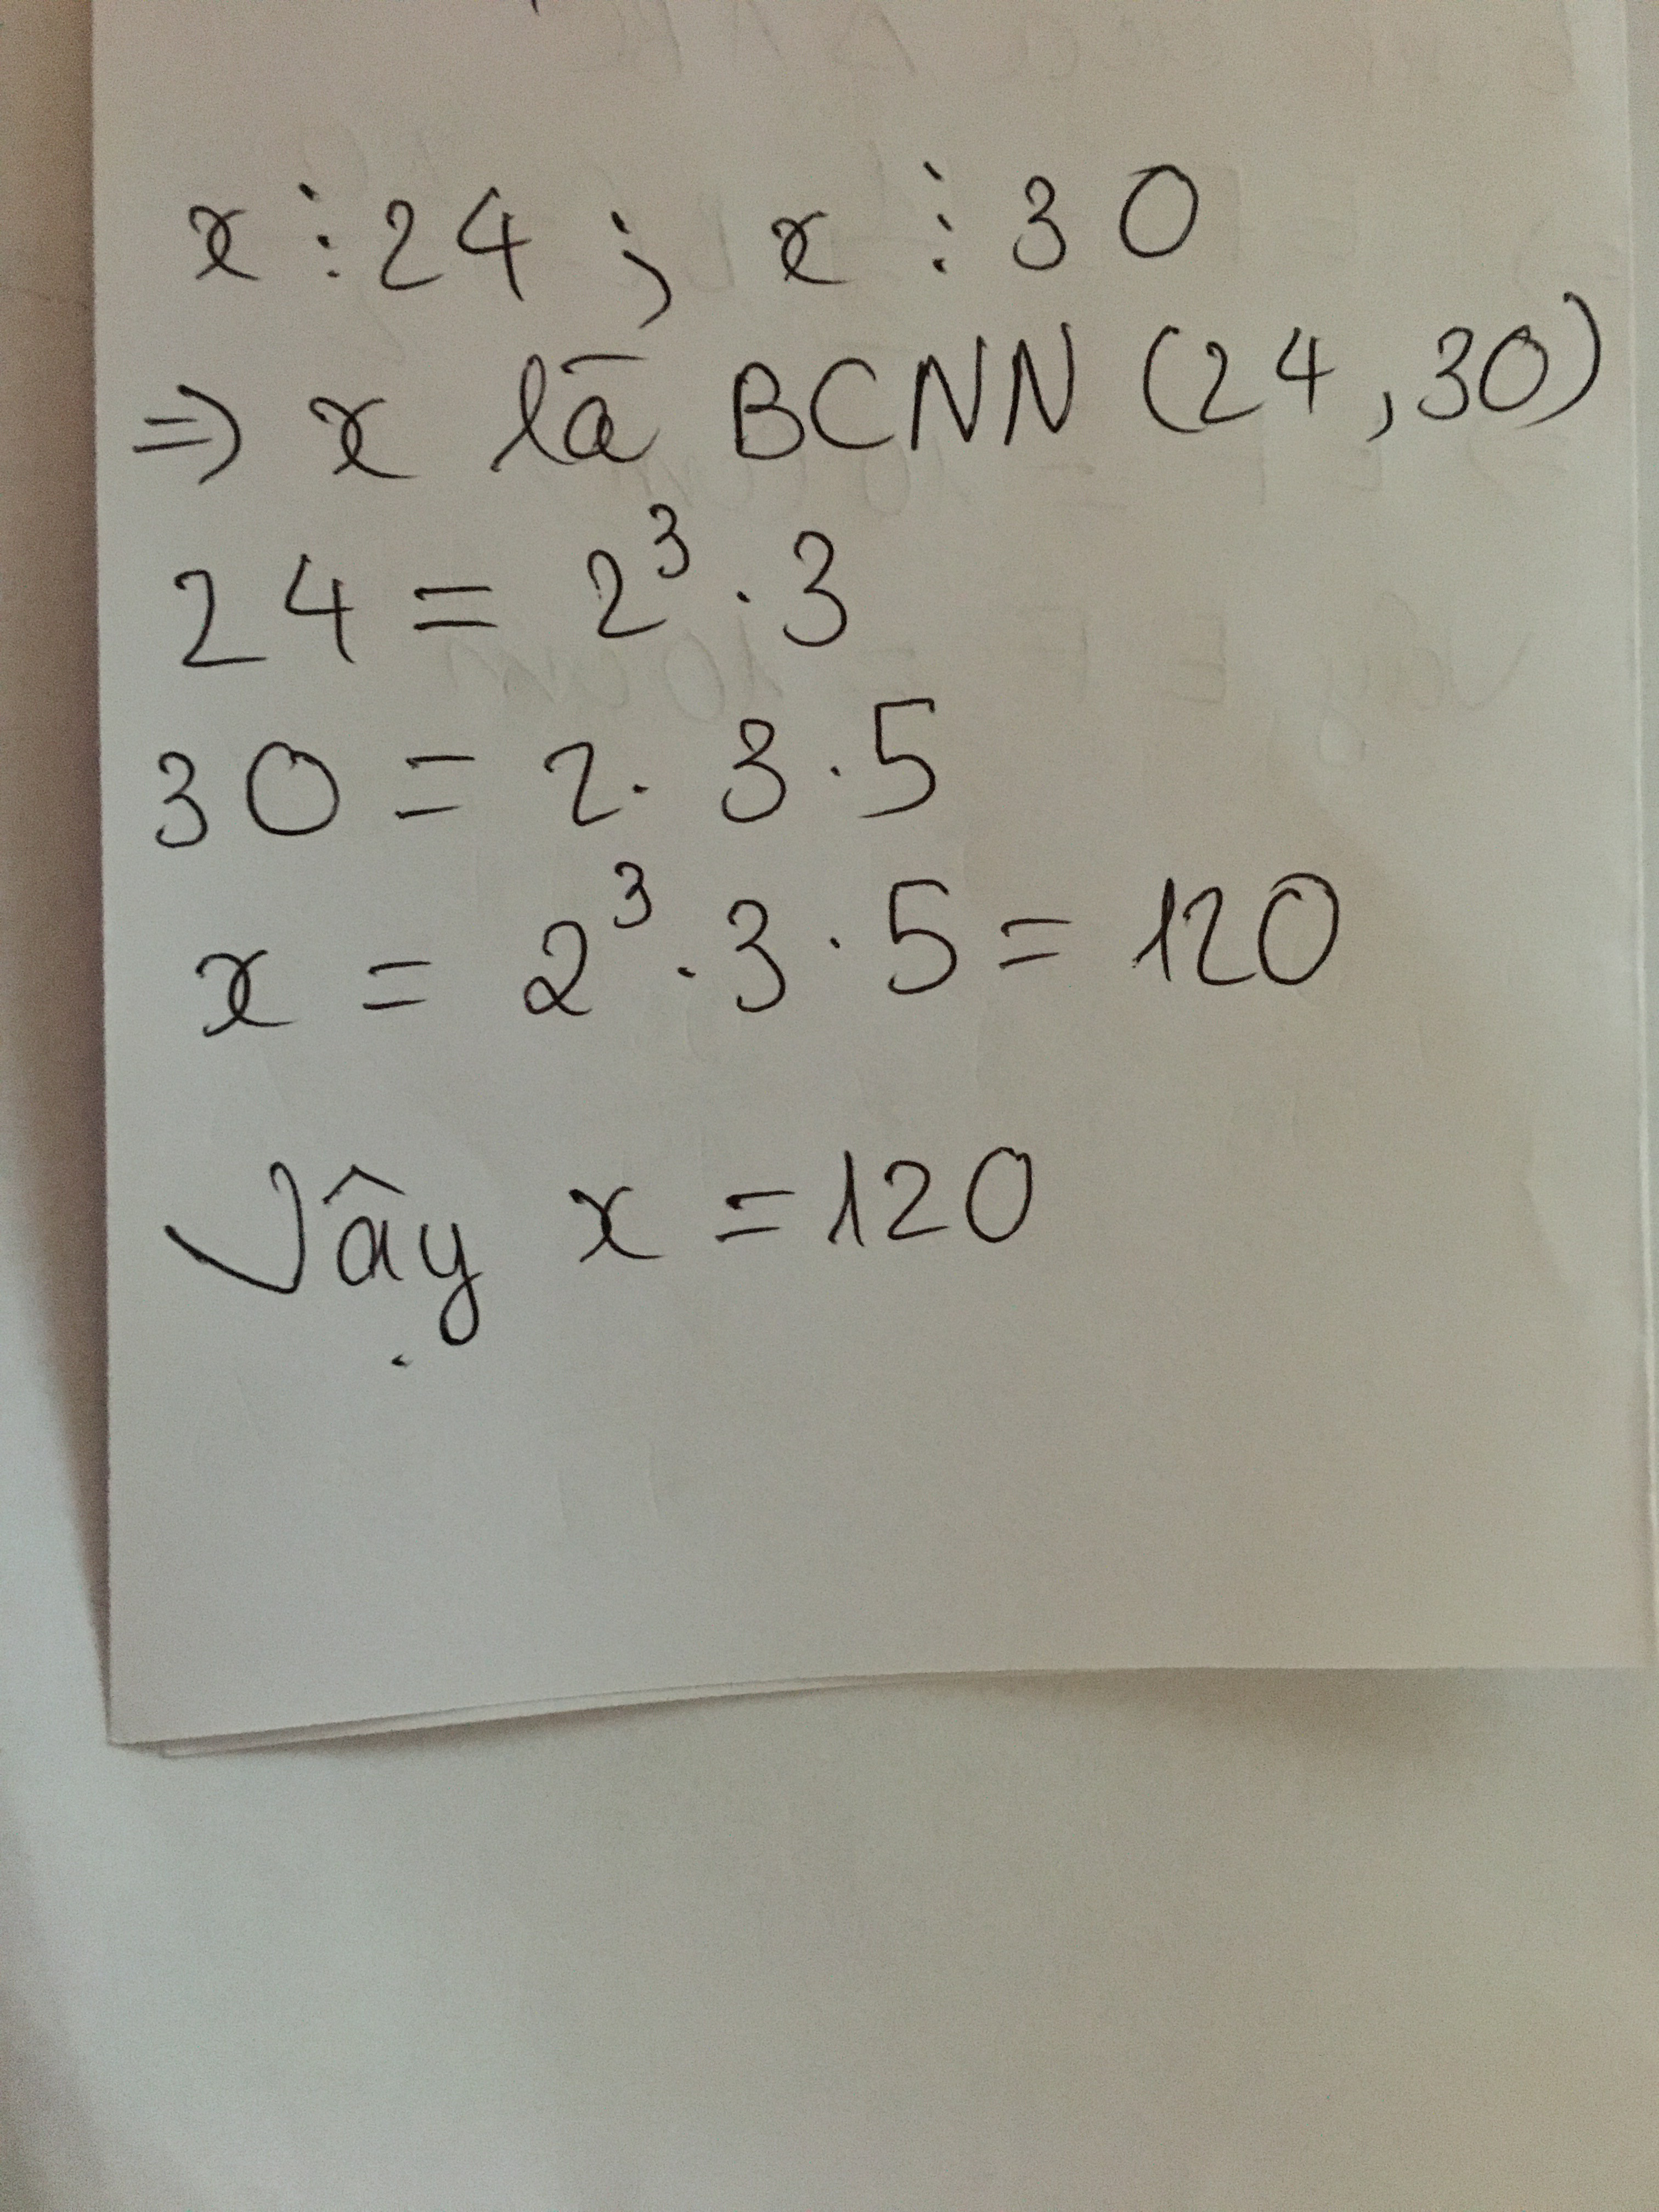 x ⋮ 24 ; x ⋮ 30
=> x là BCNN (24, 30)
24 = 2³ . 3
30 = 2 . 3 . 5
x = 2³ . 3 . 5 = 120
Vậy x = 120